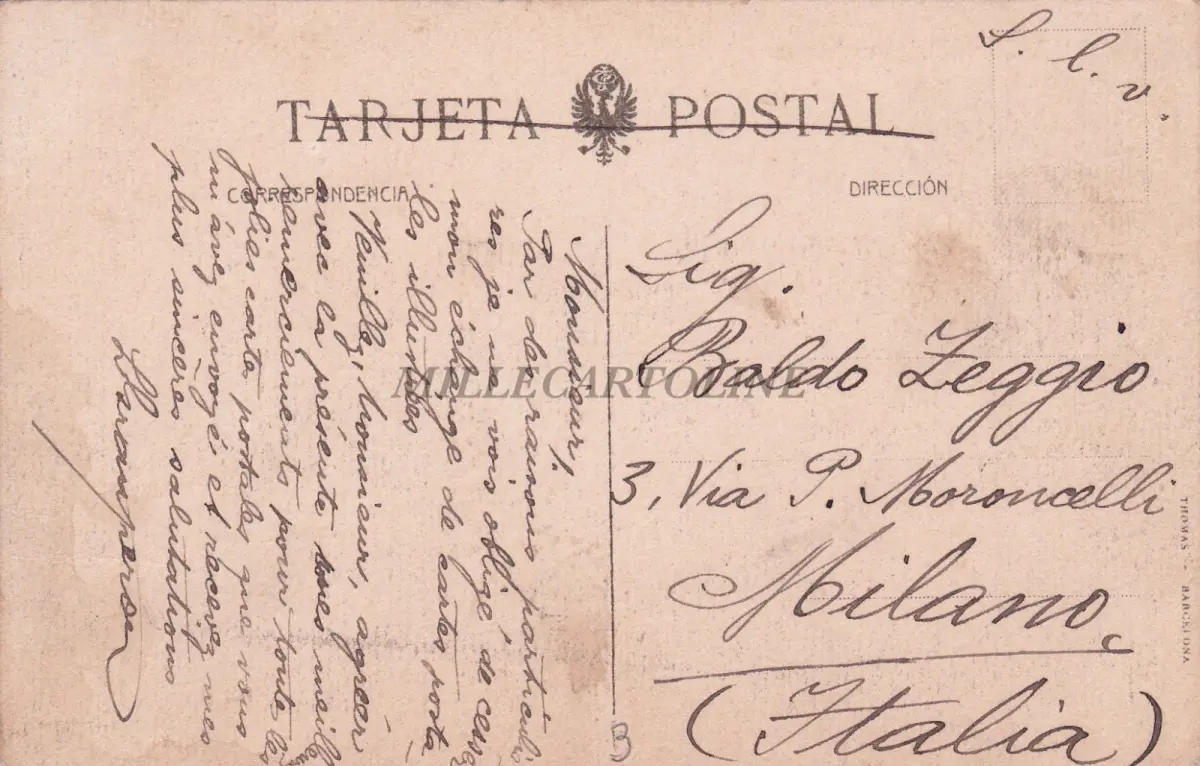 S. l. v.
TARJETA POSTAL
CORRESPONDENCIA
DIRECCIÓN
Monsieur,
Par des raisons particuliè
res je me vois obligé de cess
mon échange de cartes posta
les illustrées
Veuillez, monsieur, agréer
avec la présente mes meille
remerciements pour toute les
jolies carte postales que vous
m'avez envogé et recevez mes
plus sincères salutations
Sig.
Baldo Zeggio
3, Via P. Moroncelli
Milano
(Italia)
THOMAS - BARCELONA
MILLECARTOLINE
B